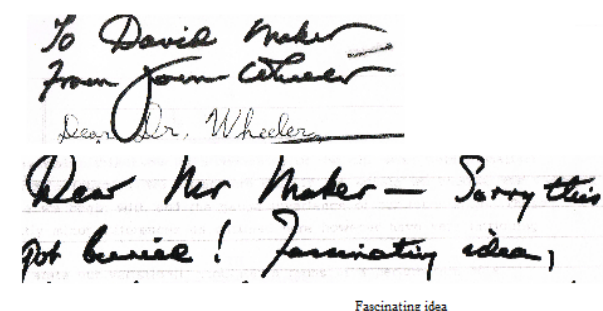 To David Maker
From John Wheeler
Dear Dr. Wheeler,
Dear Mr Maker — Sorry this
got buried! Fascinating idea,
Fascinating idea